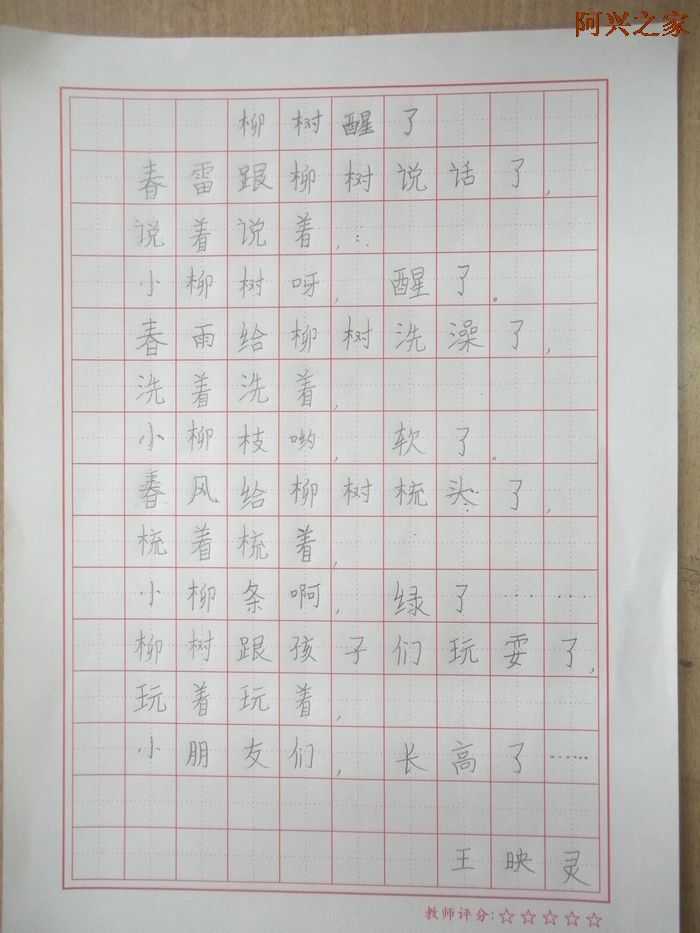 阿兴之家
柳树醒了
春雷跟柳树说话了，
说着说着，
小柳树呀，醒了。
春雨给柳树洗澡了，
洗着洗着，
小柳枝哟，软了。
春风给柳树梳头了，
梳着梳着，
小柳条啊，绿了……
柳树跟孩子们玩耍了，
玩着玩着，
小朋友们，长高了……
王映灵
教师评分:☆☆☆☆☆